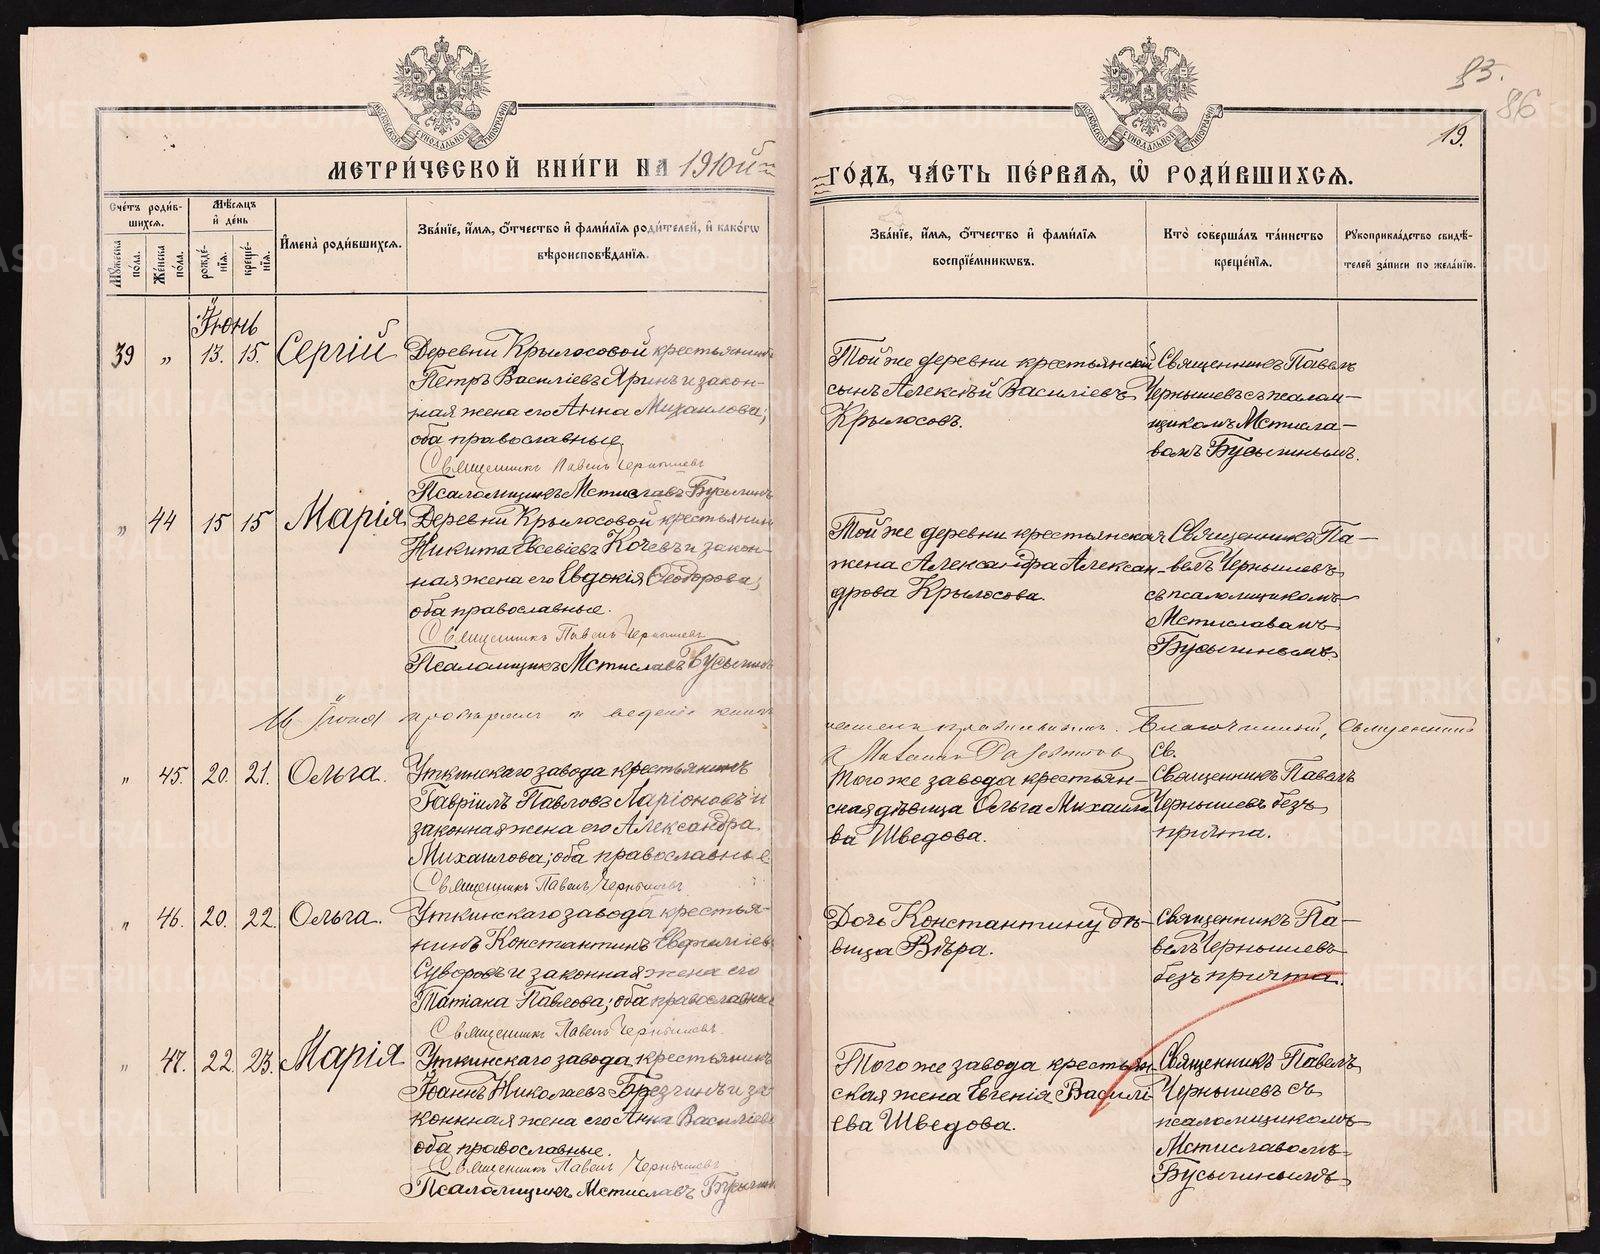 83.
86
19.
МОСКОВСКОЙ СѴНОДАЛЬНОЙ ТИПОГРАФІИ
МОСКОВСКОЙ СѴНОДАЛЬНОЙ ТИПОГРАФІИ
МЕТРИ́ЧЕСКОЙ КНИ́ГИ НА 1910й
ГО́ДЪ, ЧА́СТЬ ПЕ́РВАЯ, Ѡ҆ РОДИ́ВШИХСЯ.
Сче́тъ роди́в-
шихся.
Му́жеска по́ла.
Же́нска по́ла.
Мѣ́сяцъ
и҆ де́нь
рожде́-
нїя.
креще́-
нїя.
И҆мена̀ роди́вшихся.
Зва́нїе, и҆́мя, ѻ҆́тчество и҆ фами́лїя роди́телей, и҆ како́гѡ
вѣроисповѣ́данїя.
Зва́нїе, и҆́мя, ѻ҆́тчество и҆ фами́лїя
воспрїе́мникѡвъ.
Кто̀ соверша́лъ та́инство
креще́нїя.
Рукоприкла́дство свидѣ́-
телей за́писи по жела́нїю.
Іюнь
39 „ 13. 15. Сергій
Деревни Крылосовой крестьянинъ
Петръ Василіевъ Яринъ и закон-
ная жена его Анна Михаилова;
оба православные.
Священникъ Павелъ Чернышевъ
Псаломщикъ Мстиславъ Бусыгинъ
Той же деревни крестьянскій
сынъ Алексѣй Василіевъ
Крылосовъ.
Священникъ Павелъ
Чернышевъ съ псалом-
щикомъ Мстисла-
вомъ Бусыгинымъ.
„ 44 15 15 Марія
Деревни Крылосовой крестьянинъ
Никита Евсевіевъ Кочевъ и закон-
ная жена его Евдокія Ѳеодорова;
оба православные.
Священникъ Павелъ Чернышевъ
Псаломщикъ Мстиславъ Бусыгинъ
Той же деревни крестьянская
жена Александра Алексан-
дрова Крылосова.
Священникъ Па-
велъ Чернышевъ
съ псаломщикомъ
Мстиславомъ
Бусыгинымъ.
16 Іюня
Благочинный, Священникъ
„ 45. 20. 21. Ольга.
Уткинскаго завода крестьянинъ
Гавріилъ Павловъ Ларіоновъ и
законная жена его Александра
Михаилова; оба православные.
Священникъ Павелъ Чернышевъ
Того же завода крестьян-
ская дѣвица Ольга Михаило-
ва Шведова.
Священникъ Павелъ
Чернышевъ безъ
причта.
„ 46. 20. 22. Ольга.
Уткинскаго завода крестья-
нинъ Константинъ
Суворовъ и законная жена его
Татіана Павлова; оба православные
Священникъ Павелъ Чернышевъ.
Дочь Константину дѣ-
вица Вѣра.
Священникъ Па-
велъ Чернышевъ
безъ причта.
„ 47. 22. 23. Марія
Уткинскаго завода крестьянинъ
Іоаннъ Николаевъ Брезгинъ и за-
конная жена его Анна Василіева
оба православные.
Священникъ Павелъ Чернышевъ
Псаломщикъ Мстиславъ Бусыгинъ
Того же завода крестьян-
ская жена Евгенія Василі-
ева Шведова.
Священникъ Павелъ
Чернышевъ съ
псаломщикомъ
Мстиславомъ
Бусыгинымъ
METRIKI.GASO-URAL.RU